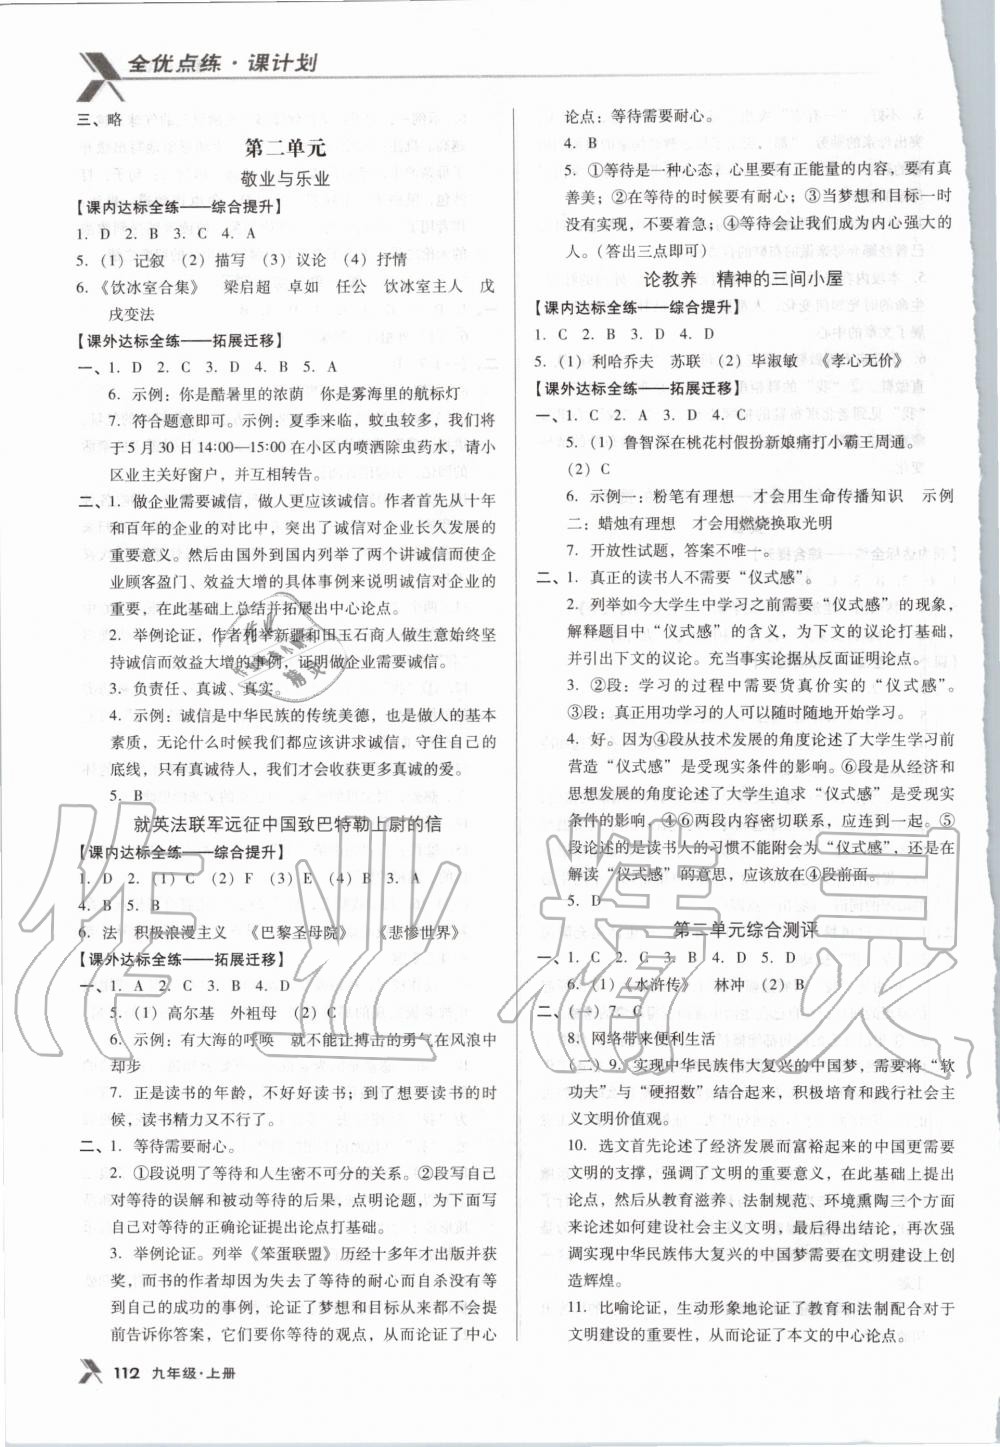 全优点练·课计划
三、略
第二单元
敬业与乐业
【课内达标全练——综合提升】
1. D  2. B  3. C  4. A
5. (1) 记叙  (2) 描写  (3) 议论  (4) 抒情
6. 《饮冰室合集》  梁启超  卓如  任公  饮冰室主人  戊
戌变法
【课外达标全练——拓展迁移】
一、1. D  2. C  3. D  4. B  5. A
6. 示例：你是酷暑里的浓荫  你是雾海里的航标灯
7. 符合题意即可。示例：夏季来临，蚊虫较多，我们将
于 5 月 30 日 14:00—15:00 在小区内喷洒除虫药水，请小
区业主关好窗户，并互相转告。
二、1. 做企业需要诚信，做人更应该诚信。作者首先从十年
和百年的企业的对比中，突出了诚信对企业长久发展的
重要意义。然后由国外到国内列举了两个讲诚信而使企
业顾客盈门、效益大增的具体事例来说明诚信对企业的
重要，在此基础上总结并拓展出中心论点。
2. 举例论证，作者列举新疆和田玉石商人做生意始终坚
持诚信而效益大增的事例，证明做企业需要诚信。
3. 负责任、真诚、真实。
4. 示例：诚信是中华民族的传统美德，也是做人的基本
素质，无论什么时候我们都应该讲求诚信，守住自己的
底线，只有真诚待人，我们才会收获更多真诚的爱。
5. B
就英法联军远征中国致巴特勒上尉的信
【课内达标全练——综合提升】
1. D  2. (1) C  (2) F  (3) E  (4) B  3. A
4. B  5. B
6. 法  积极浪漫主义  《巴黎圣母院》  《悲惨世界》
【课外达标全练——拓展迁移】
一、1. A  2. C  3. B  4. D
5. (1) 高尔基  外祖母  (2) C
6. 示例：有大海的呼唤  就不能让搏击的勇气在风浪中
却步
7. 正是读书的年龄，不好好读书；到了想要读书的时
候，读书精力又不行了。
二、1. 等待需要耐心。
2. ①段说明了等待和人生密不可分的关系。②段写自
己对等待的误解和被动等待的后果，点明论题，为下面写
自己对等待的正确论证提出论点打基础。
3. 举例论证。列举《笨蛋联盟》历经十多年才出版并获
奖，而书的作者却因为失去了等待的耐心而自杀没有等
到自己的成功的事例，论证了梦想和目标从来都不会提
前告诉你答案，它们要你等待的观点，从而论证了中心
论点：等待需要耐心。
4. B
5. ①等待是一种心态，心里要有正能量的内容，要有真
善美；②在等待的时候要有耐心；③当梦想和目标一时
没有实现，不要着急；④等待会让我们成为内心强大的
人。（答出三点即可）
论教养  精神的三间小屋
【课内达标全练——综合提升】
1. C  2. B  3. D  4. D
5. (1) 利哈乔夫  苏联  (2) 毕淑敏  《孝心无价》
【课外达标全练——拓展迁移】
一、1. C  2. A  3. D  4. C
5. (1) 鲁智深在桃花村假扮新娘痛打小霸王周通。
(2) C
6. 示例一：粉笔有理想  才会用生命传播知识  示例
二：蜡烛有理想  才会用燃烧换取光明
7. 开放性试题，答案不唯一。
二、1. 真正的读书人不需要“仪式感”。
2. 列举如今大学生中学习之前需要“仪式感”的现象，
解释题目中“仪式感”的含义，为下文的议论打基础，
并引出下文的议论。充当事实论据从反面证明论点。
3. ②段：学习的过程中需要货真价实的“仪式感”。
③段：真正用功学习的人可以随时随地开始学习。
4. 好。因为④段从技术发展的角度论述了大学生学习前
营造“仪式感”是受现实条件的影响。⑥段是从经济和
思想发展的角度论述了大学生追求“仪式感”是受现实
条件的影响，④⑥两段内容密切联系，应连到一起。⑤
段论述的是读书人的习惯不能附会为“仪式感”，还是在
解读“仪式感”的意思，应该放在④段前面。
5. D
第二单元综合测评
一、1. C  2. C  3. B  4. D  5. D
6. (1)《水浒传》  林冲  (2) B
二、(一) 7. C
8. 网络带来便利生活
(二) 9. 实现中华民族伟大复兴的中国梦，需要将“软
功夫”与“硬招数”结合起来，积极培育和践行社会主
义文明价值观。
10. 选文首先论述了经济发展而富裕起来的中国更需要
文明的支撑，强调了文明的重要意义，在此基础上提出
论点，然后从教育滋养、法制规范、环境熏陶三个方面
来论述如何建设社会主义文明，最后得出结论，再次强
调实现中华民族伟大复兴的中国梦需要在文明建设上创
造辉煌。
11. 比喻论证，生动形象地论证了教育和法制配合对于
文明建设的重要性，从而论证了本文的中心论点。
112 九年级·上册
作业精灵